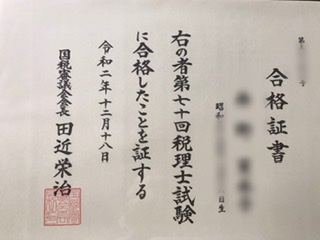 第 号
合格証書
昭和 日生
右の者第七十回税理士試験
に合格したことを証する
令和二年十二月十八日
国税審議会会長 田近栄治